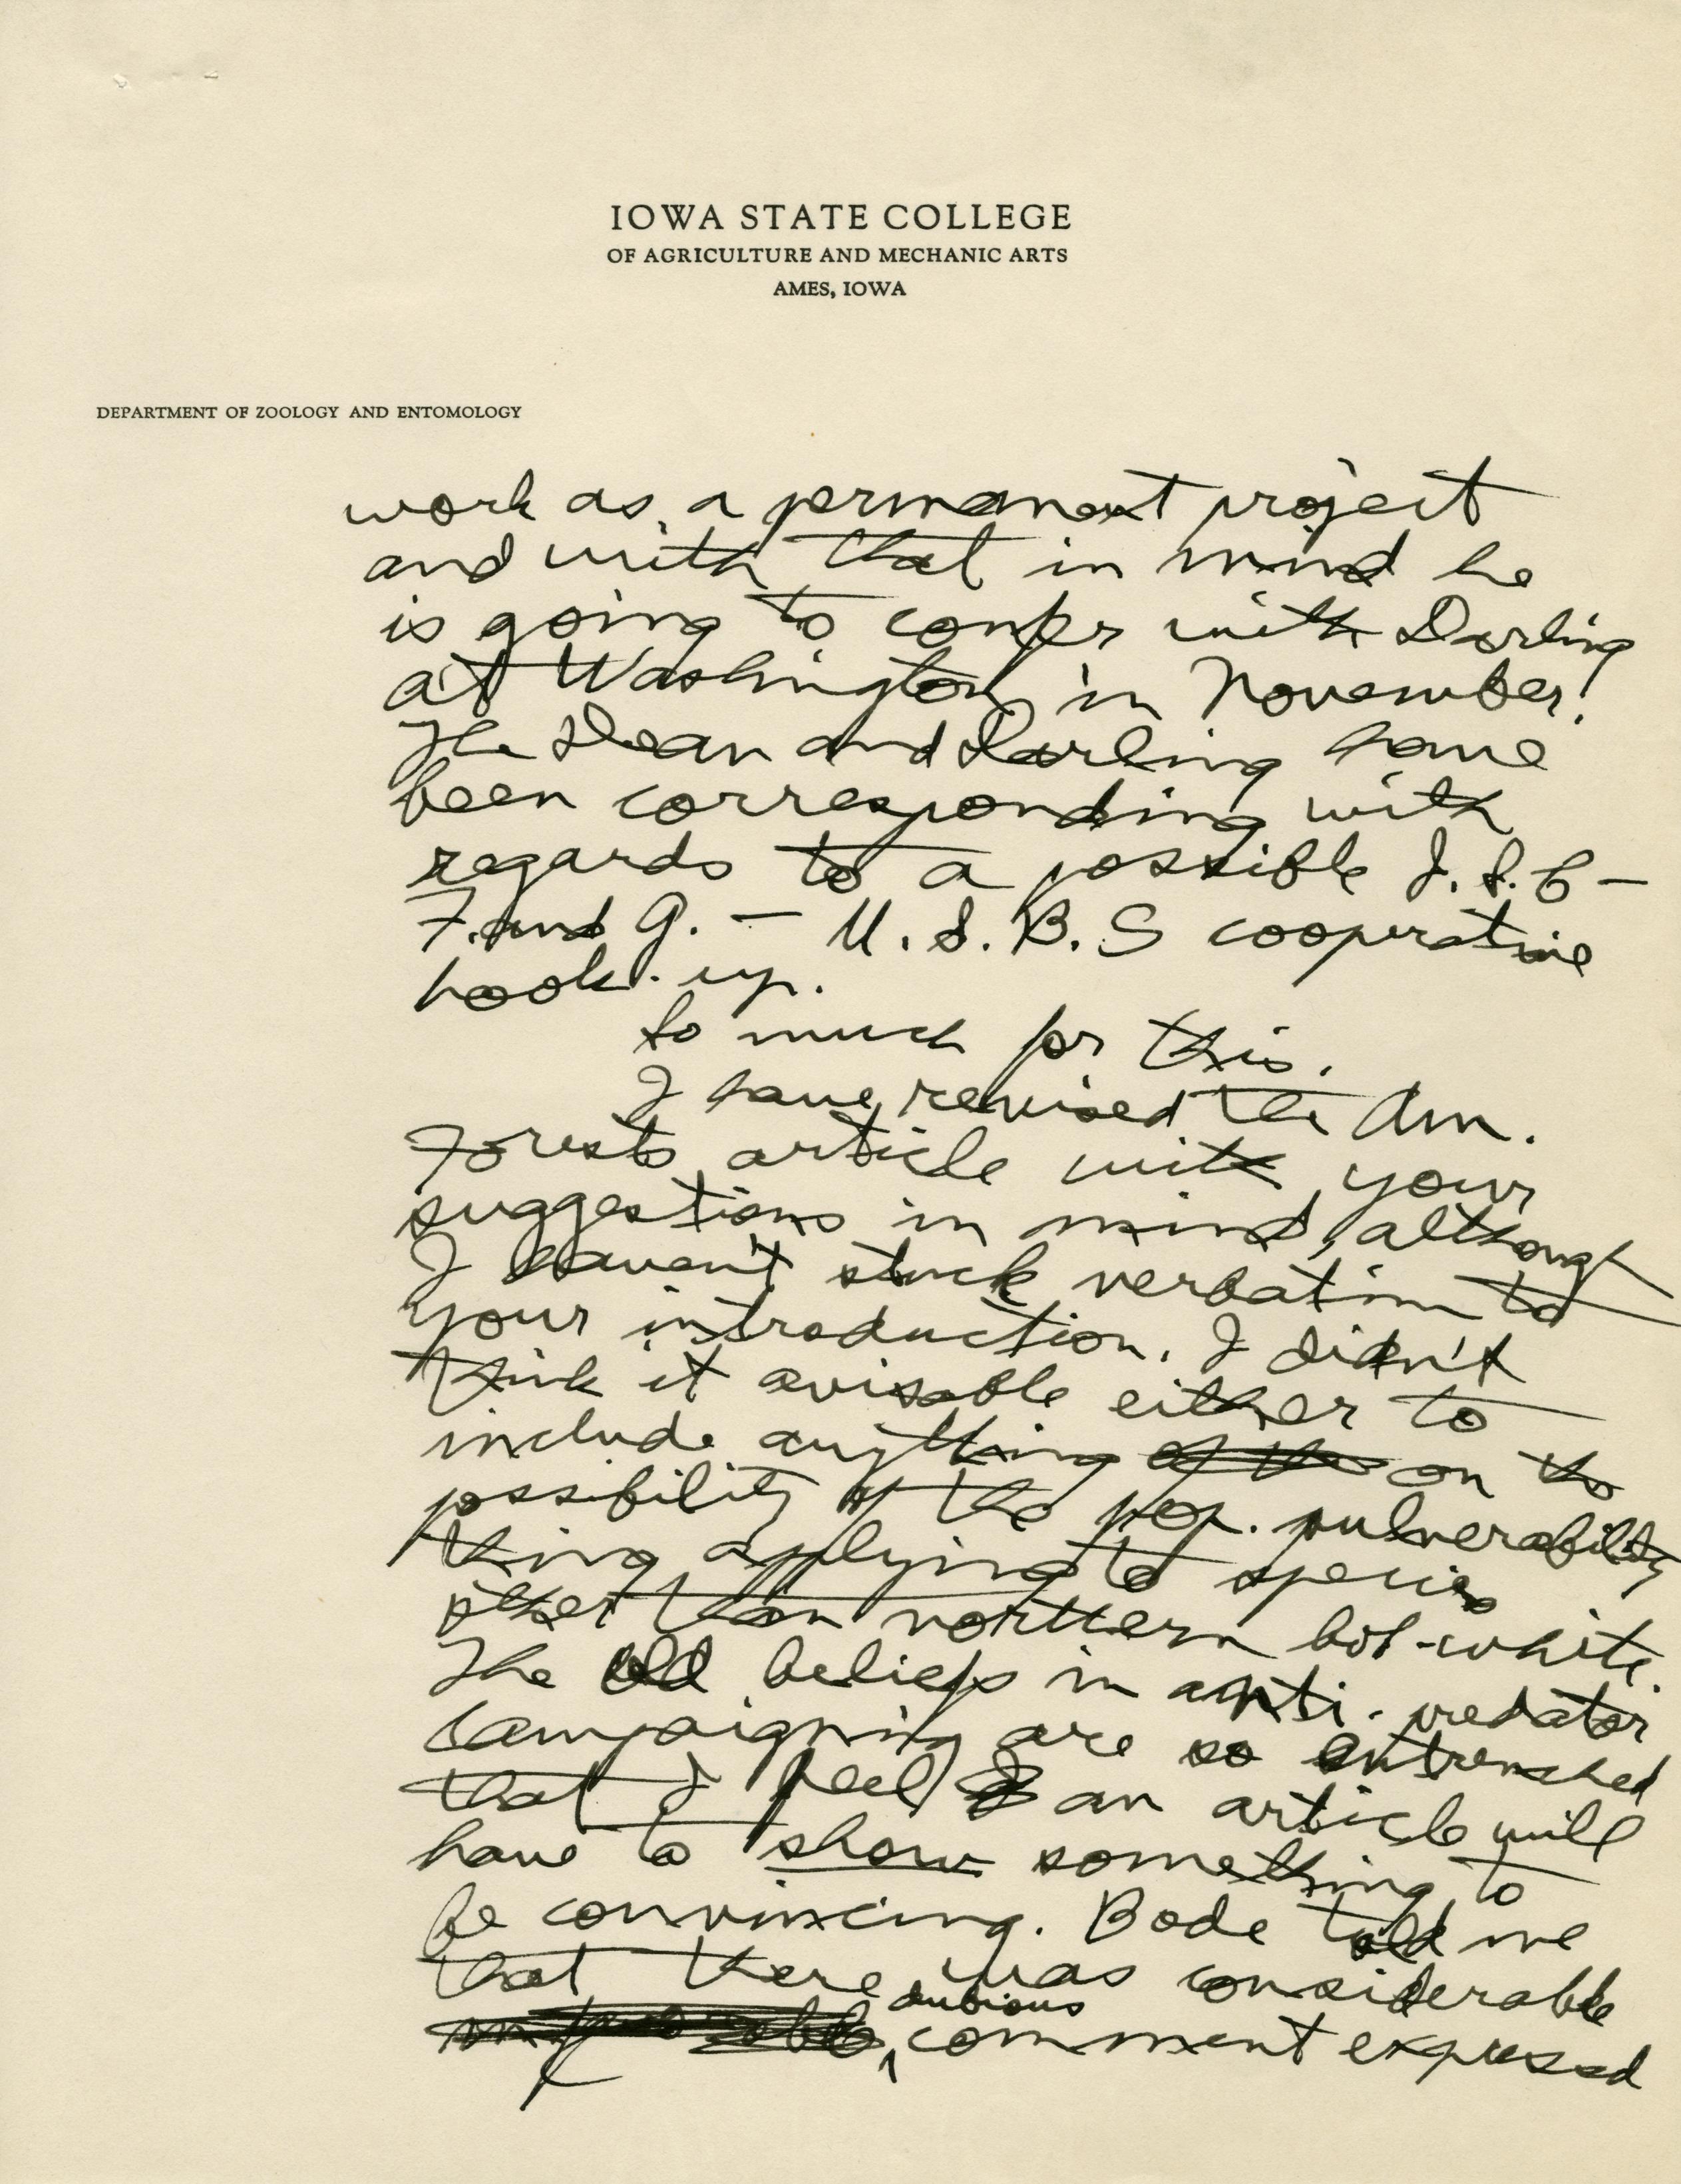 IOWA STATE COLLEGE
OF AGRICULTURE AND MECHANIC ARTS
AMES, IOWA
DEPARTMENT OF ZOOLOGY AND ENTOMOLOGY
work as a permanent project
and with that in mind he
is going to confer with Darling
at Washington in November!
The Dean and Darling have
been corresponding with
regards to a possible I.S.C-
F. and G. - U.S.B.S cooperative
hook-up.
So much for this.
I have revised the Am.
Forests article with your
suggestions in mind, although
I haven't stuck verbatim to
your introduction. I didn't
think it avisable either to
include anything of the on the
possibility of the pop. vulnerability
thing applying to species
other than northern bob-white.
The old beliefs in anti-predator
campaigning are so entrenched
that I feel an article will
have to show something to
be convincing. Bode told me
that there was considerable
dubious
comment expressed